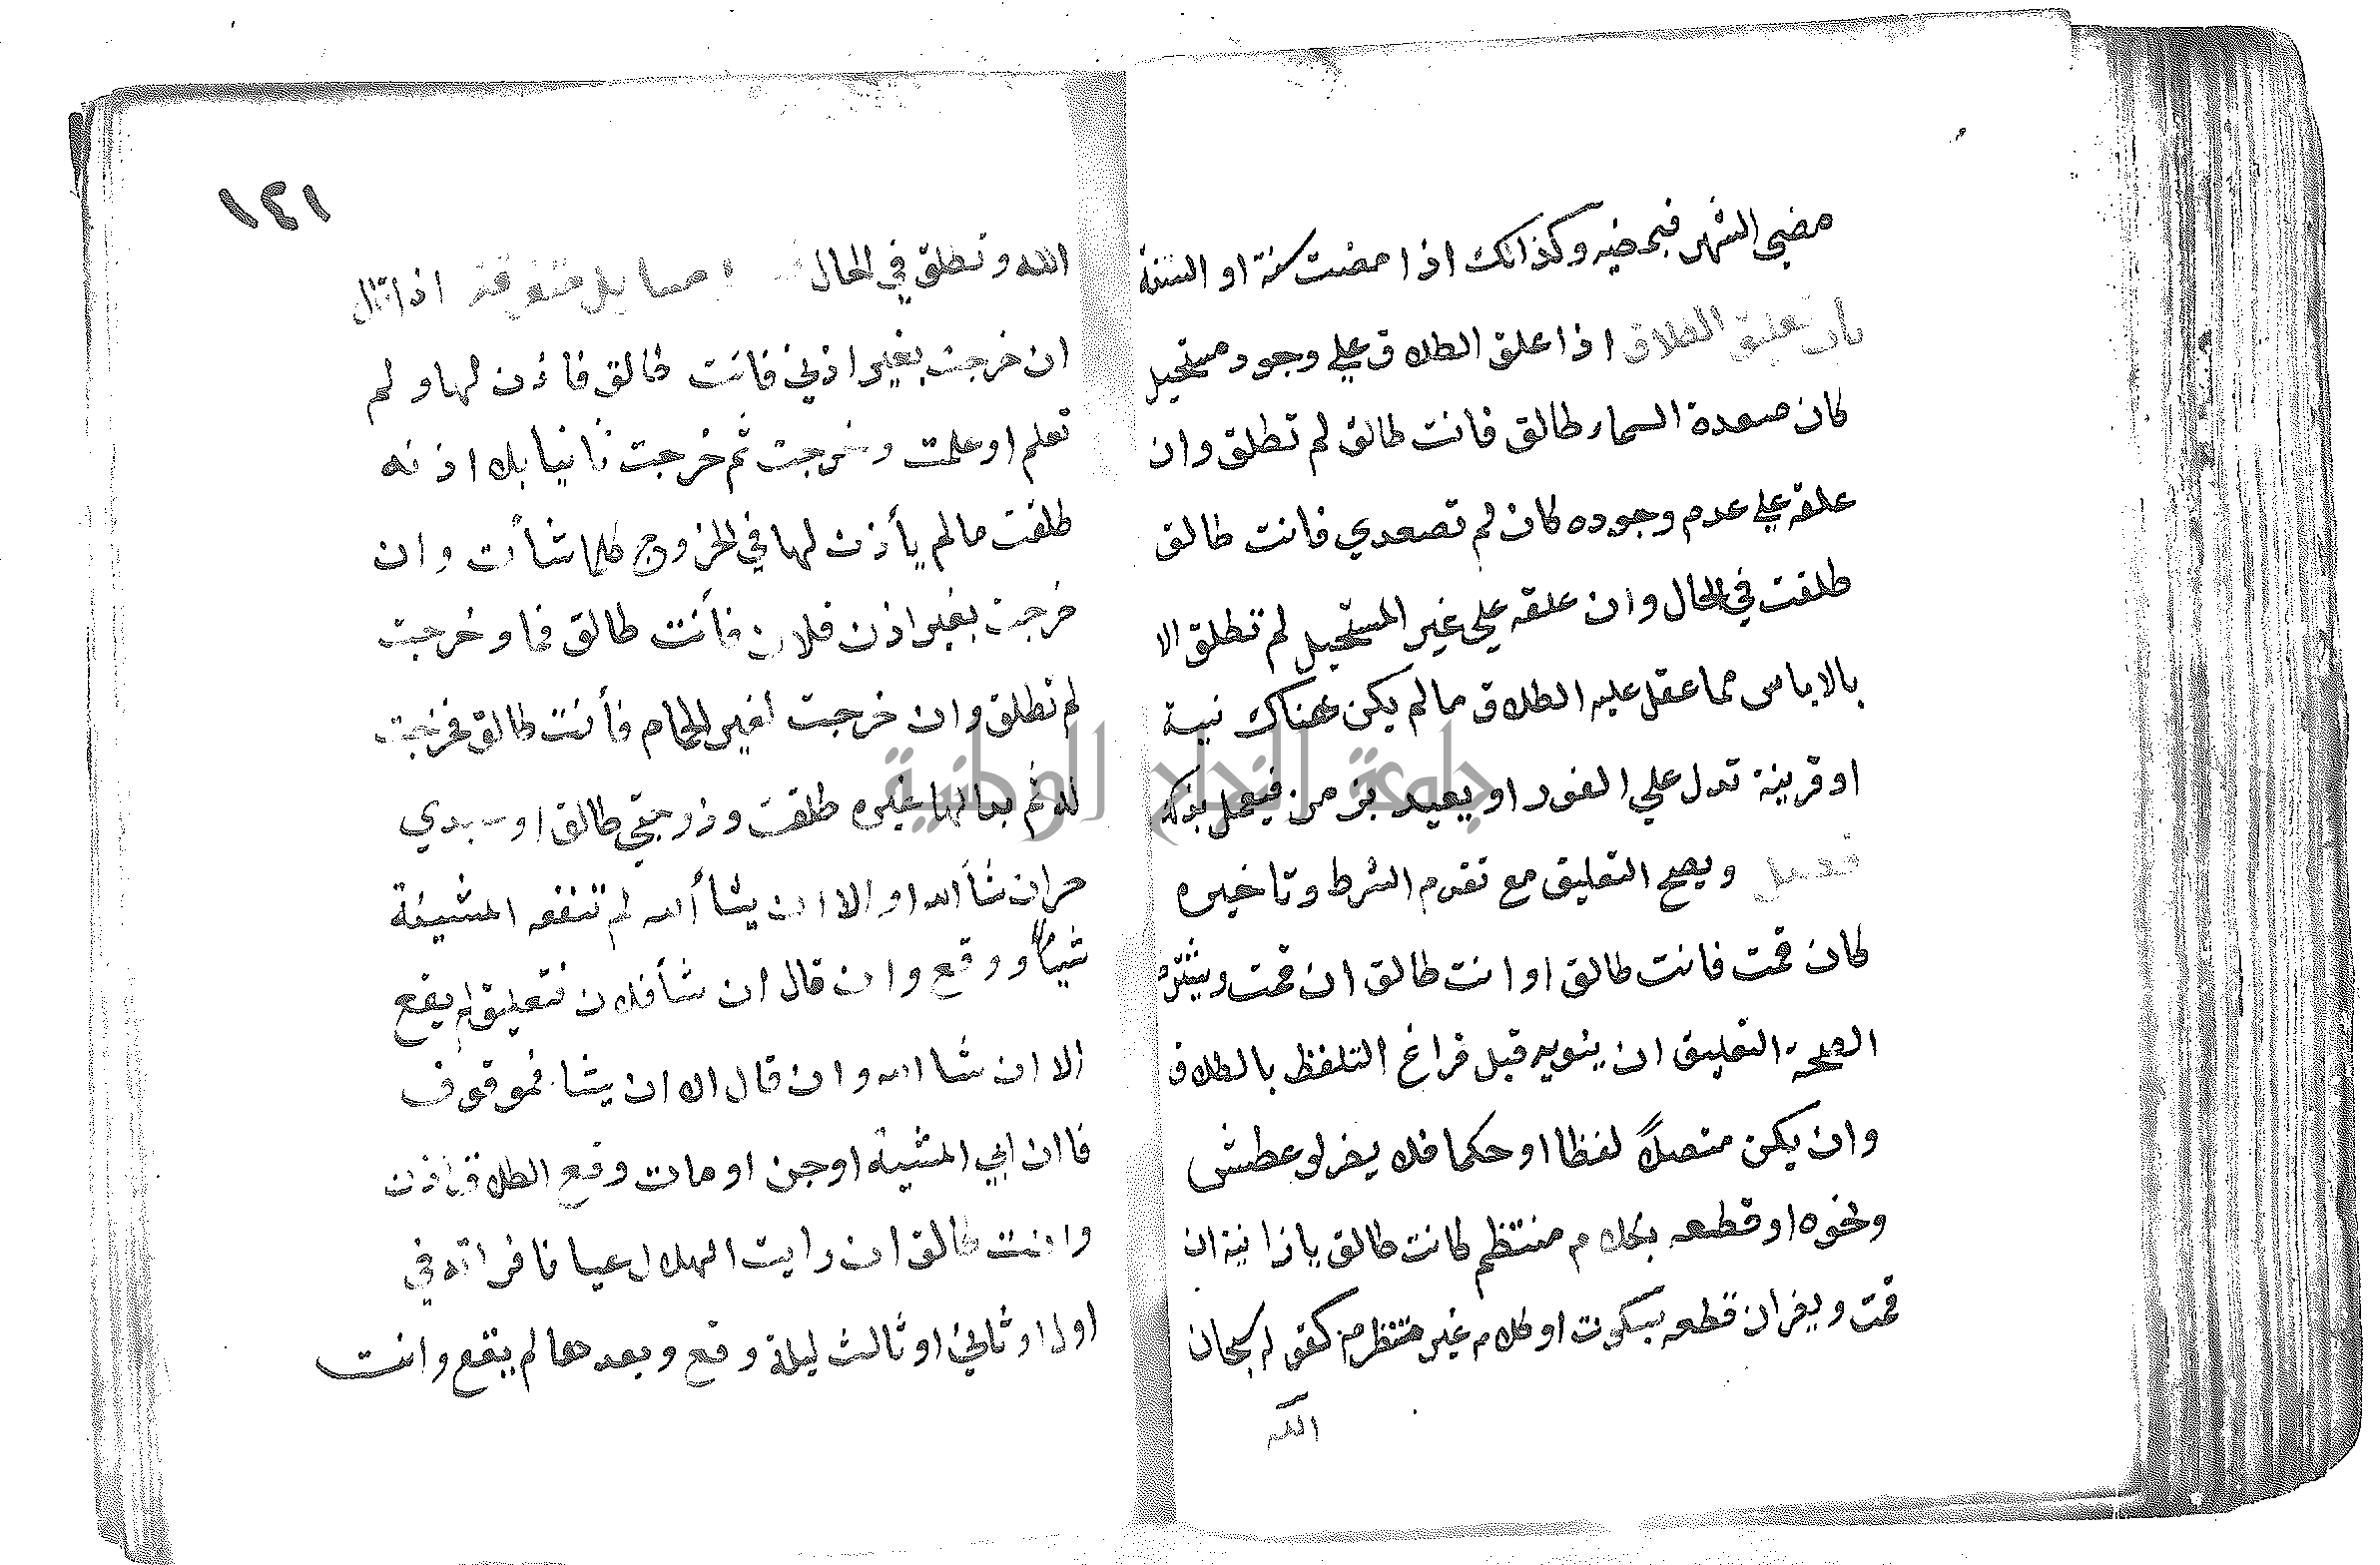 مضي الشهر فبمضيه وكذالك اذا مضت سنة او السنة
باب تعليق الطلاق اذا علق الطلاق علي وجود مستحيل
كان صعدة السماء طالق فانت طالق لم تطلق وان
علقه علي عدم وجوده كان لم تصعدي فانت طالق
طلقت في الحال وان علقه علي غير المستحيل لم تطلق الا
بالاياس مما عقل عليه الطلاق مالم يكن هناك نية
او قرينة تدل علي الفور او يقيد بزمن فيعمل بذلك
فصل ويصح التعليق مع تقدم الشرط وتاخيره
كان قمت فانت طالق او انت طالق ان قمت ويشترط
لصحة التعليق ان ينويه قبل فراغ التلفظ بالطلاق
وان يكن متصلاً لفظا او حكما فلا يضر لو عطش
ونحوه او قطعه بكلام منتظم كانت طالق يا زانية ان
قمت ويضر ان قطعه بسكوت او كلام غير منتظم كقوله سبحان
الله
١٤١
الله وتطلق في الحال مسايل متفرقة اذا قال
ان خرجت بغير اذني فانت طالق فأذن لها ولم
تعلم او علمت وخرجت ثم خرجت ثانيا بلا اذنه
طلقت مالم يأذن لها في الخروج كلما شأت وان
خرجت بغير اذن فلان فأنت طالق فمات وخرجت
لم تطلق وان خرجت لغير الحمام فأنت طالق فخرجت
له ثم بدا لها غيره طلقت وزوجتي طالق او عبدي
حر ان شأ الله او الا ان يشأ الله لم تنفعه المشيئة
شيأً ووقع وان قال ان شأ فلان فتعليق لم يقع
الا ان شا الله وان قال الا ان يشا فموقوف
فاان ابي المشية او جن او مات وقع الطلاق اذن
وانت طالق ان رايت الهلال عيانا فراته في
اول او ثاني او ثالث ليلة وقع وبعدها لم يقع وانت
جامعة النجاح الوطنية